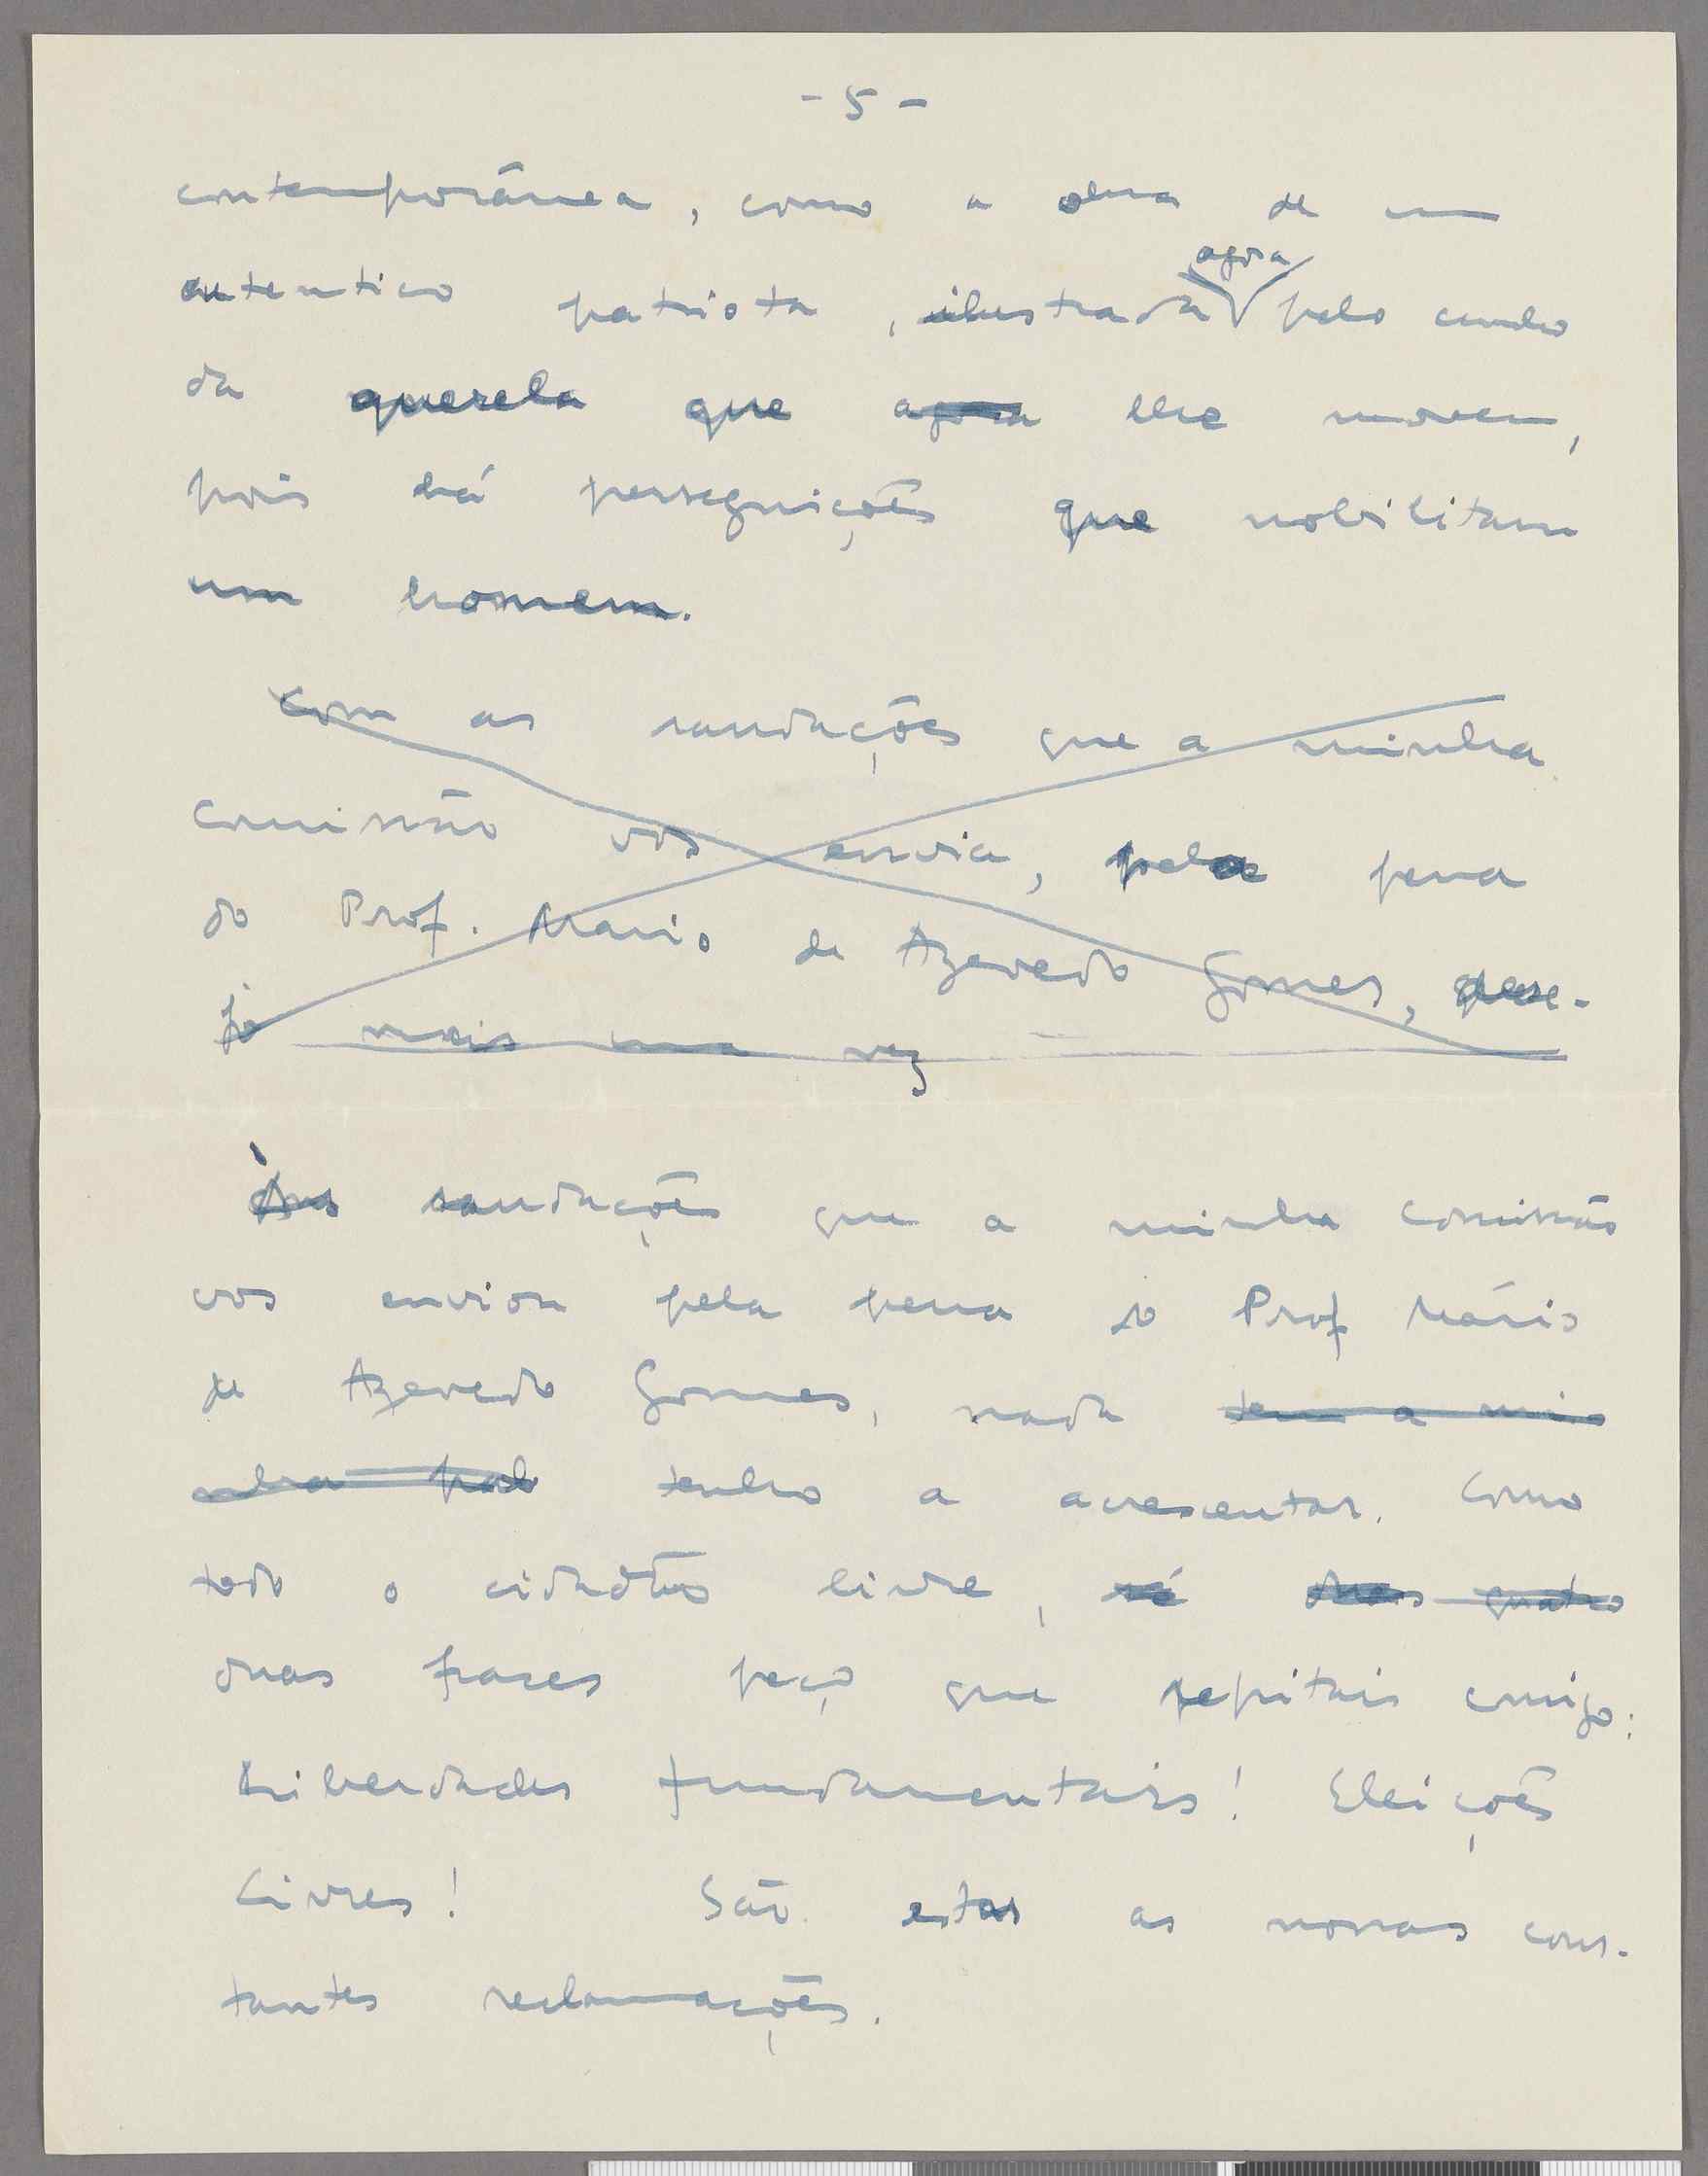 - 5 -
contemporânea, como a obra de um
agora
autentico patriota, ilustrada pelo cunho
da querela que agora lhe movem,
pois há perseguições que nobilitam
um homem.
Com as saudações que a minha
comissão vos envia, pela pena
do Prof. Mario de Azevedo Gomes, dese-
jo mais uma vez
Às saudações que a minha comissão
vos enviou pela pena do Prof Mário
de Azevedo Gomes, nada tem a mi
nha pal tenho a acrescentar. Como
todo o cidadão livre, só duas quatro
duas frases peço que repitais comigo:
Liberdades Fundamentais! Eleições
Livres! São estas as nossas cons-
tantes reclamações.